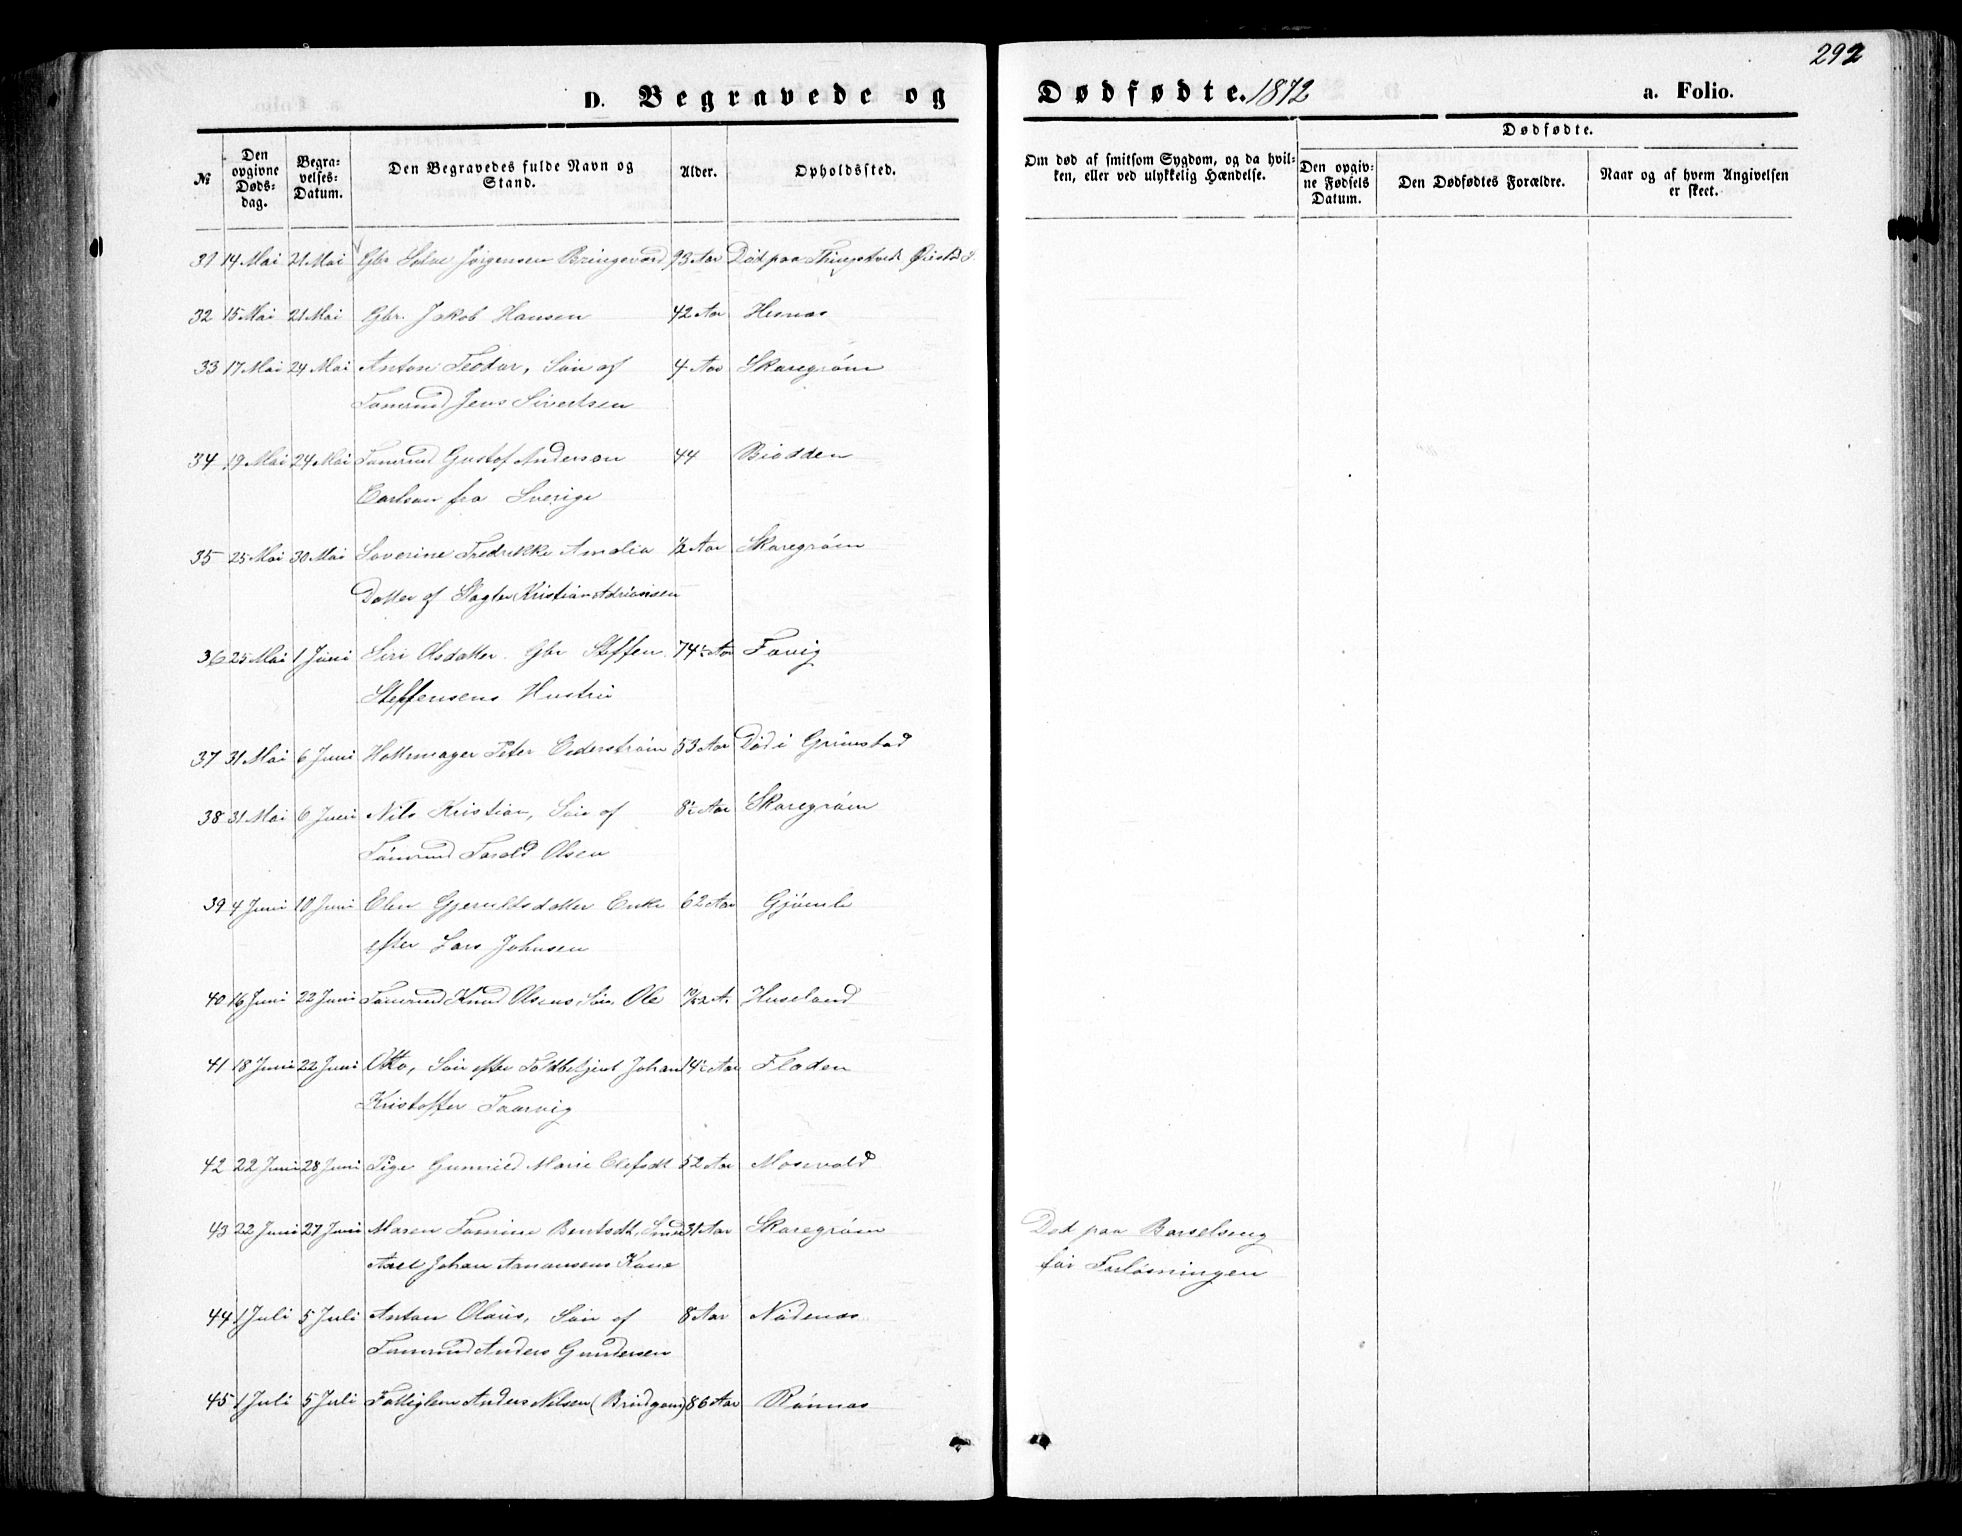 292
D. Begravede og Dødfødte. 1872 a. Folio.
№ Den opgivne Døds-dag. Begra-velses-Datum. Den Begravedes fulde Navn og Stand. Alder. Opholdssted. Om død af smitsom Sygdom, og da hvil-ken, eller ved ulykkelig Hændelse. Dødfødte. Den opgiv-ne Fødsels Datum. Den Dødfødtes Forældre. Naar og af hvem Angivelsen er skeet.
31 14 Mai 21 Mai Gbr Jørgensen Bringsværd 93 Aar Død paa
32 15 Mai 21 Mai Gbr. Jakob Hansen 42 Aar Hesnæs
33 17 Mai 24 Mai Anton Teodor, Søn af 4 Aar Skaregrøm
Tømmd Jens Sivertsen
34 19 Mai 24 Mai Tømmd Gustof Anderson 44 Biodden
Carlson fra Sverige
35 25 Mai 30 Mai Severine Fredrikke Amalia ½ Aar Skaregrøm
Datter af Slagter Kristian Adriansen
36 25 Mai 1 Juni Siri Olsdatter Gbr Steffen 74½ Aar Favig
Steffensens Hustru
37 31 Mai 6 Juni Hattemager Peter Cederstrøm 53 Aar Død i Grimstad
38 31 Mai 6 Juni Nils Kristian, Søn af 8½ Aar Skaregrøm
Tømmd Tarald Olsen
39 4 Juni 10 Juni Elen Gjeruldsdatter Enke 62 Aar Gjømle
efter Lars Johnsen
40 16 Juni 22 Juni Tømmd Knud Olsens Søn Ole Huseland
41 18 Juni 22 Juni Otto, Søn efter Toldbetjent Johan 14½ Aar Fladen
Kristoffer Taarvig
42 22 Juni 28 Juni Pige Gunnild Marie Olefsdt 52 Aar Mosevold
43 22 Juni 27 Juni Maren Tomine Bentsdt, Smed 31 Aar Skaregrøm Død paa Barselseng
Axel Johan Aanonsens Kone før Forløsningen
44 1 Juli 5 Juli Anton Olaus, Søn af 8 Aar Nødenæs
Tømmd Anders Gundersen
45 1 Juli 5 Juli Fattiglem Anders Nilsen 86 Aar Rønnæs